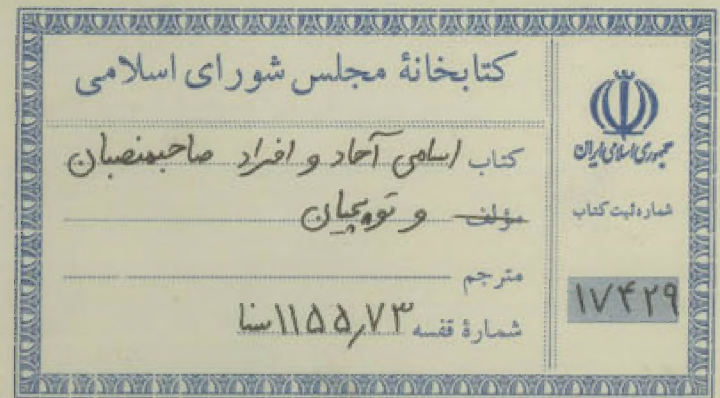 کتابخانهٔ مجلس شورای اسلامی
کتاب اسامی آحاد و افراد صاحبمنصبان
مؤلف و توپچیان
مترجم
شمارهٔ قفسه ۱۱۵۵٫۷۳ سنا
جمهوری اسلامی ایران
شماره ثبت کتاب
۱۷۴۲۹